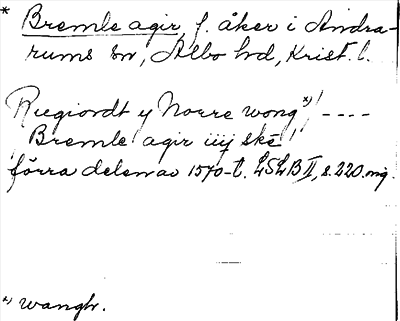 * Bremle agir, f. åker i Andra-
rums sn, Albo hd, Krist. l.
Rugiordt y Norre wong *)! ----
Bremle agir iiij ske !
förra delen av 1570-t. LSLB II, s. 220. mg.
*) wangh.